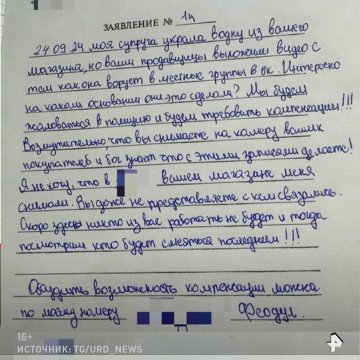 ЗАЯВЛЕНИЕ № 14
24.09.24 моя супруга украла водку из вашего
магазина, но ваши продавщицы выложили видео с
тем как она ворует в местные группы в вк. Интересно
на каком основании они это сделали? Мы будем
жаловаться в полицию и будем требовать компенсации!!!
Возмутительно что вы снимаете на камеру ваших
покупателей и бог знает что с этими записями делаете!
Я не хочу, что в вашем магазине меня
снимали. Вы даже не представляете с кем связались.
Скоро здесь никто из вас работать не будет и тогда
посмотрим кто будет смеяться последнем!!!
Обсудить возможность компенсации можна
по моему номеру Феодул.
16+
ИСТОЧНИК: TG/URD_NEWS